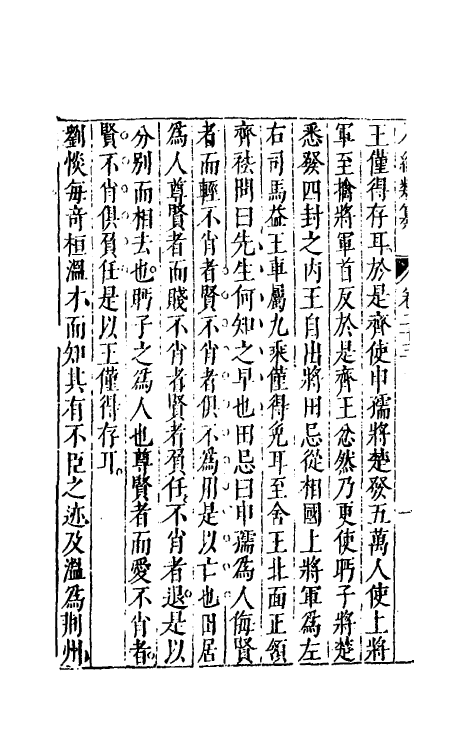 編類 卷二十
王僅得存耳於是齊使申孺將楚發五萬人使上將
軍至擒將軍首反於是齊王忿然乃更使眄子將楚
悉發四封之内王自出將田忌從相國上將軍爲左
右司馬益王車屬九乘僅得免耳至舍王北面正領
齊袪問曰先生何知之早也田忌曰申孺爲人侮賢
者而輕不肖者賢不肖者俱不爲用是以亡也田居
爲人尊賢者而賤不肖者賢者負任不肖者退是以
分別而相去也眄子之爲人也尊賢者而愛不肖者
賢不肖俱負任是以王僅得存耳
劉惔每奇桓溫才而知其有不臣之迹及溫爲荆州